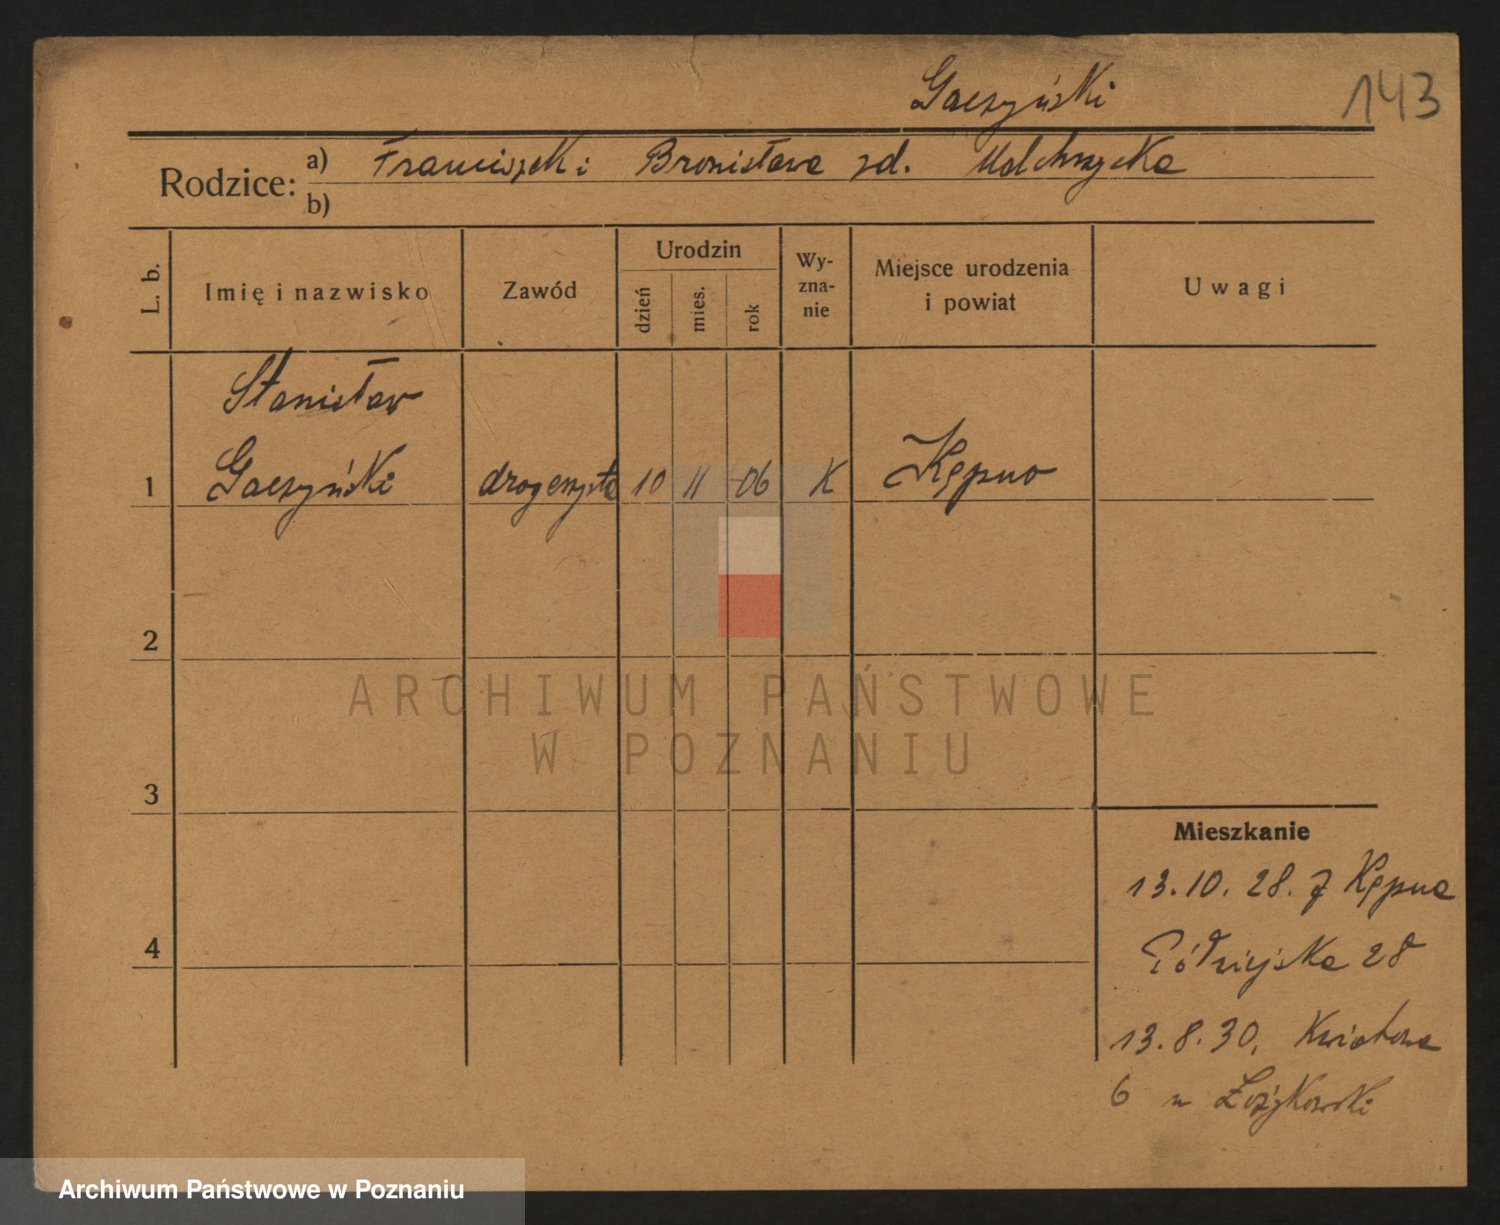 Gaeszyński 143
Rodzice: a) Franciszek i Bronisława zd.
b)
L. b. Imię i nazwisko Zawód Urodzin dzień mies. rok Wyznanie Miejsce urodzenia i powiat Uwagi
Stanisław
1 Gaeszyński drogerzysta 10 11 06 K Kępno
2
3
4
Mieszkanie
13.10.28. z Kępna
Półwiejska 28
13.8.30, Kwiatowa
6 u
ARCHIWUM PAŃSTWOWE
W POZNANIU
Archiwum Państwowe w Poznaniu